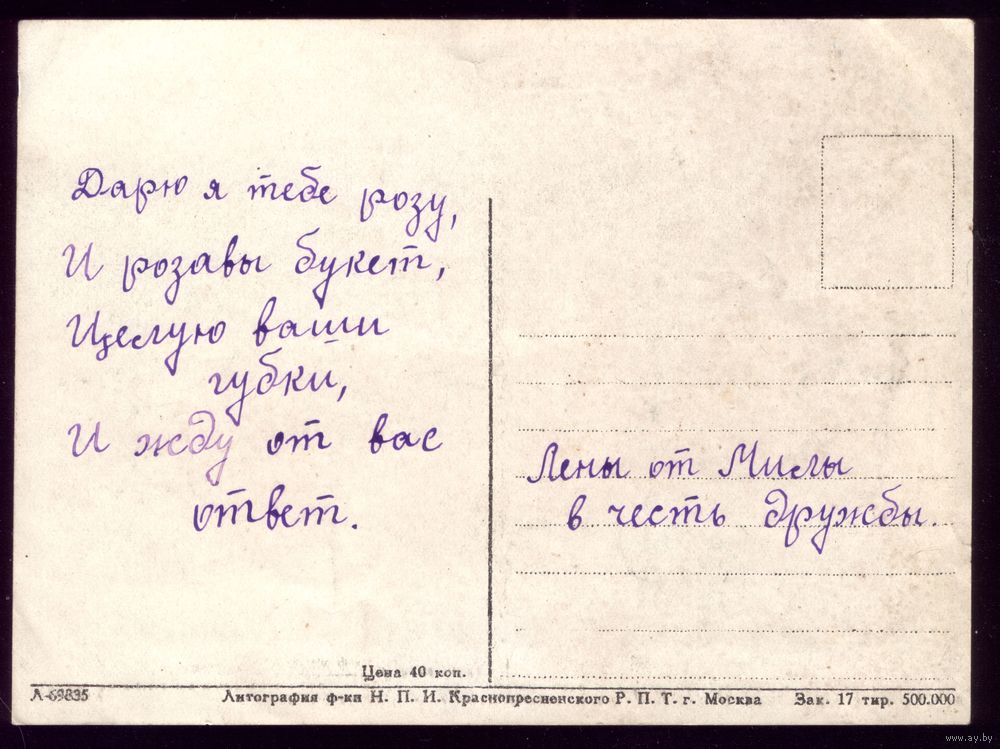 Дарю я тебе розу,
И розавы букет,
Целую ваши
губки,
И жду от вас
ответ.
Лены от Милы
в честь дружбы.
Цена 40 коп.
А-69835
Литография ф-ки Н. П. И. Краснопресненского Р. П. Т. г. Москва
Зак. 17 тир. 500.000
www.ay.by